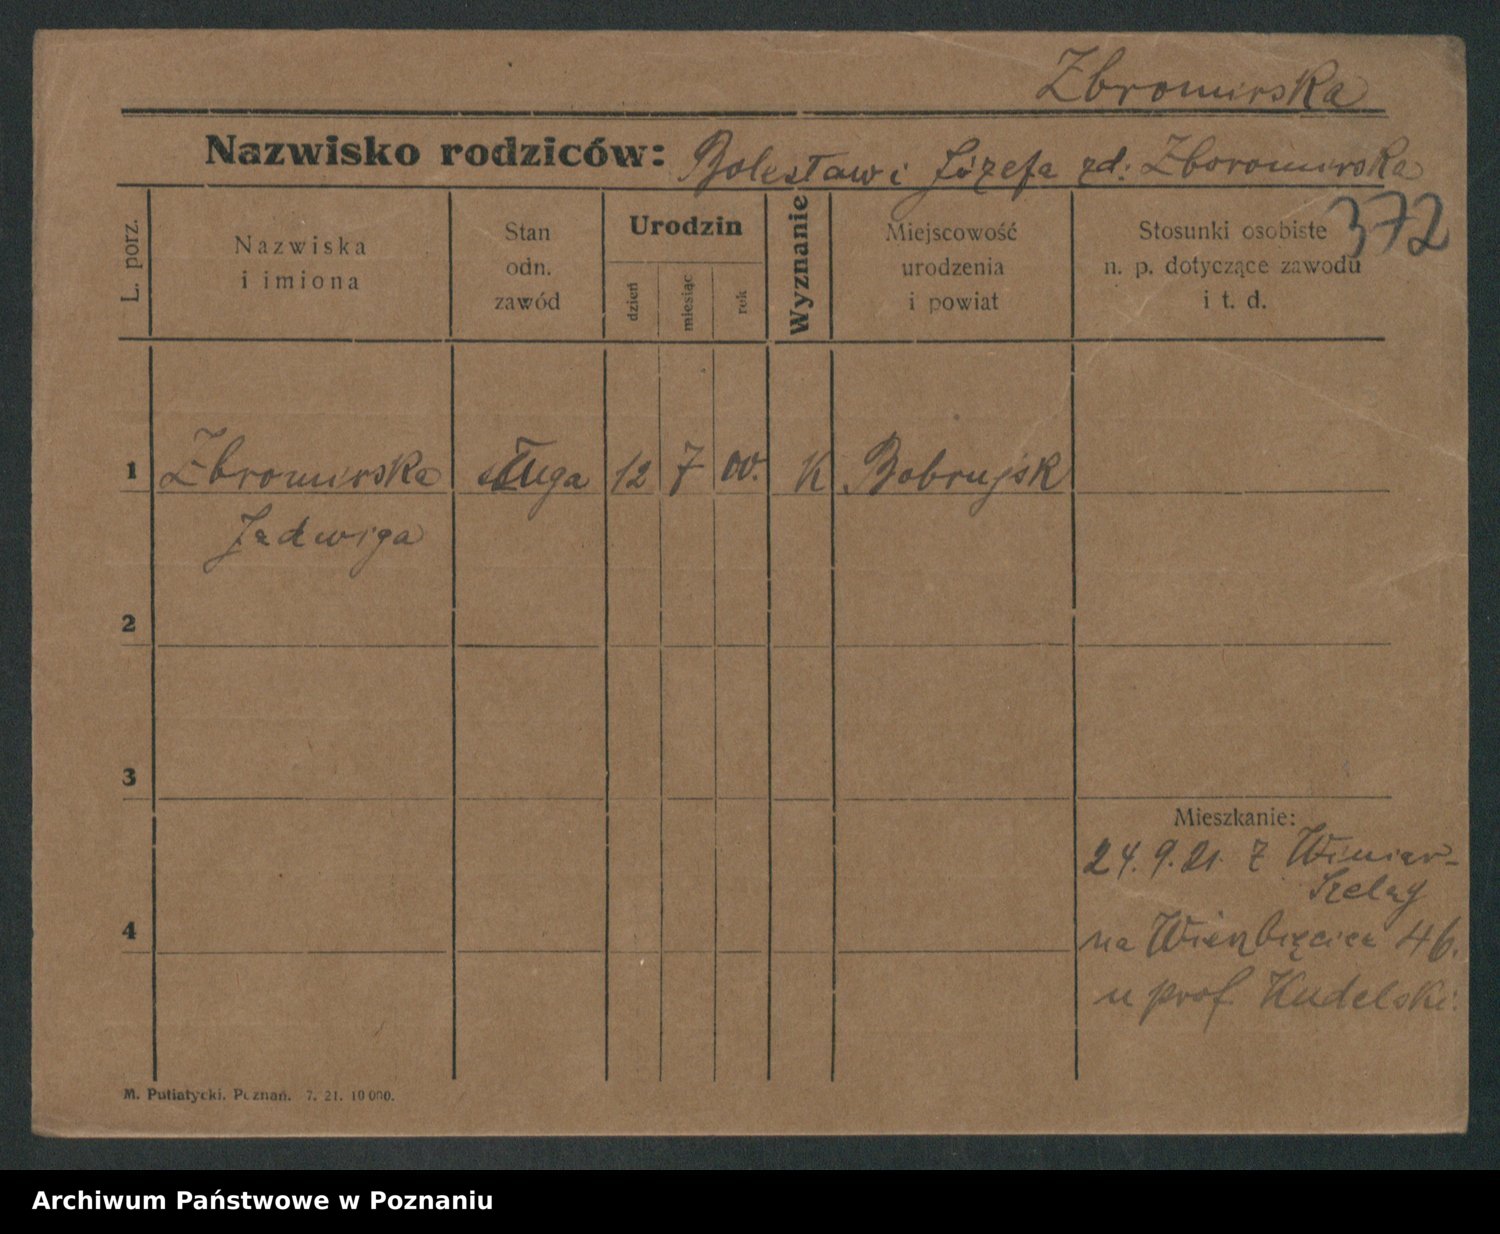 Zbromirska
Nazwisko rodziców: Bolesław i Józefa zd: Zboromirska
372
L. porz.
Nazwiska
i imiona
Stan
odn.
zawód
Urodzin
dzień
miesiąc
rok
Wyznanie
Miejscowość
urodzenia
i powiat
Stosunki osobiste
n. p. dotyczące zawodu
i t. d.
1 Zbromirska sługa 12 7 00. K Bobrujsk
Jadwiga
2
3
Mieszkanie:
24. 9. 21. z Winiar-
Szeląg
4
na Wierzbięcice 46.
u prof. Kudelski.
M. Putiatycki, Poznań. 7. 21. 10000.
Archiwum Państwowe w Poznaniu